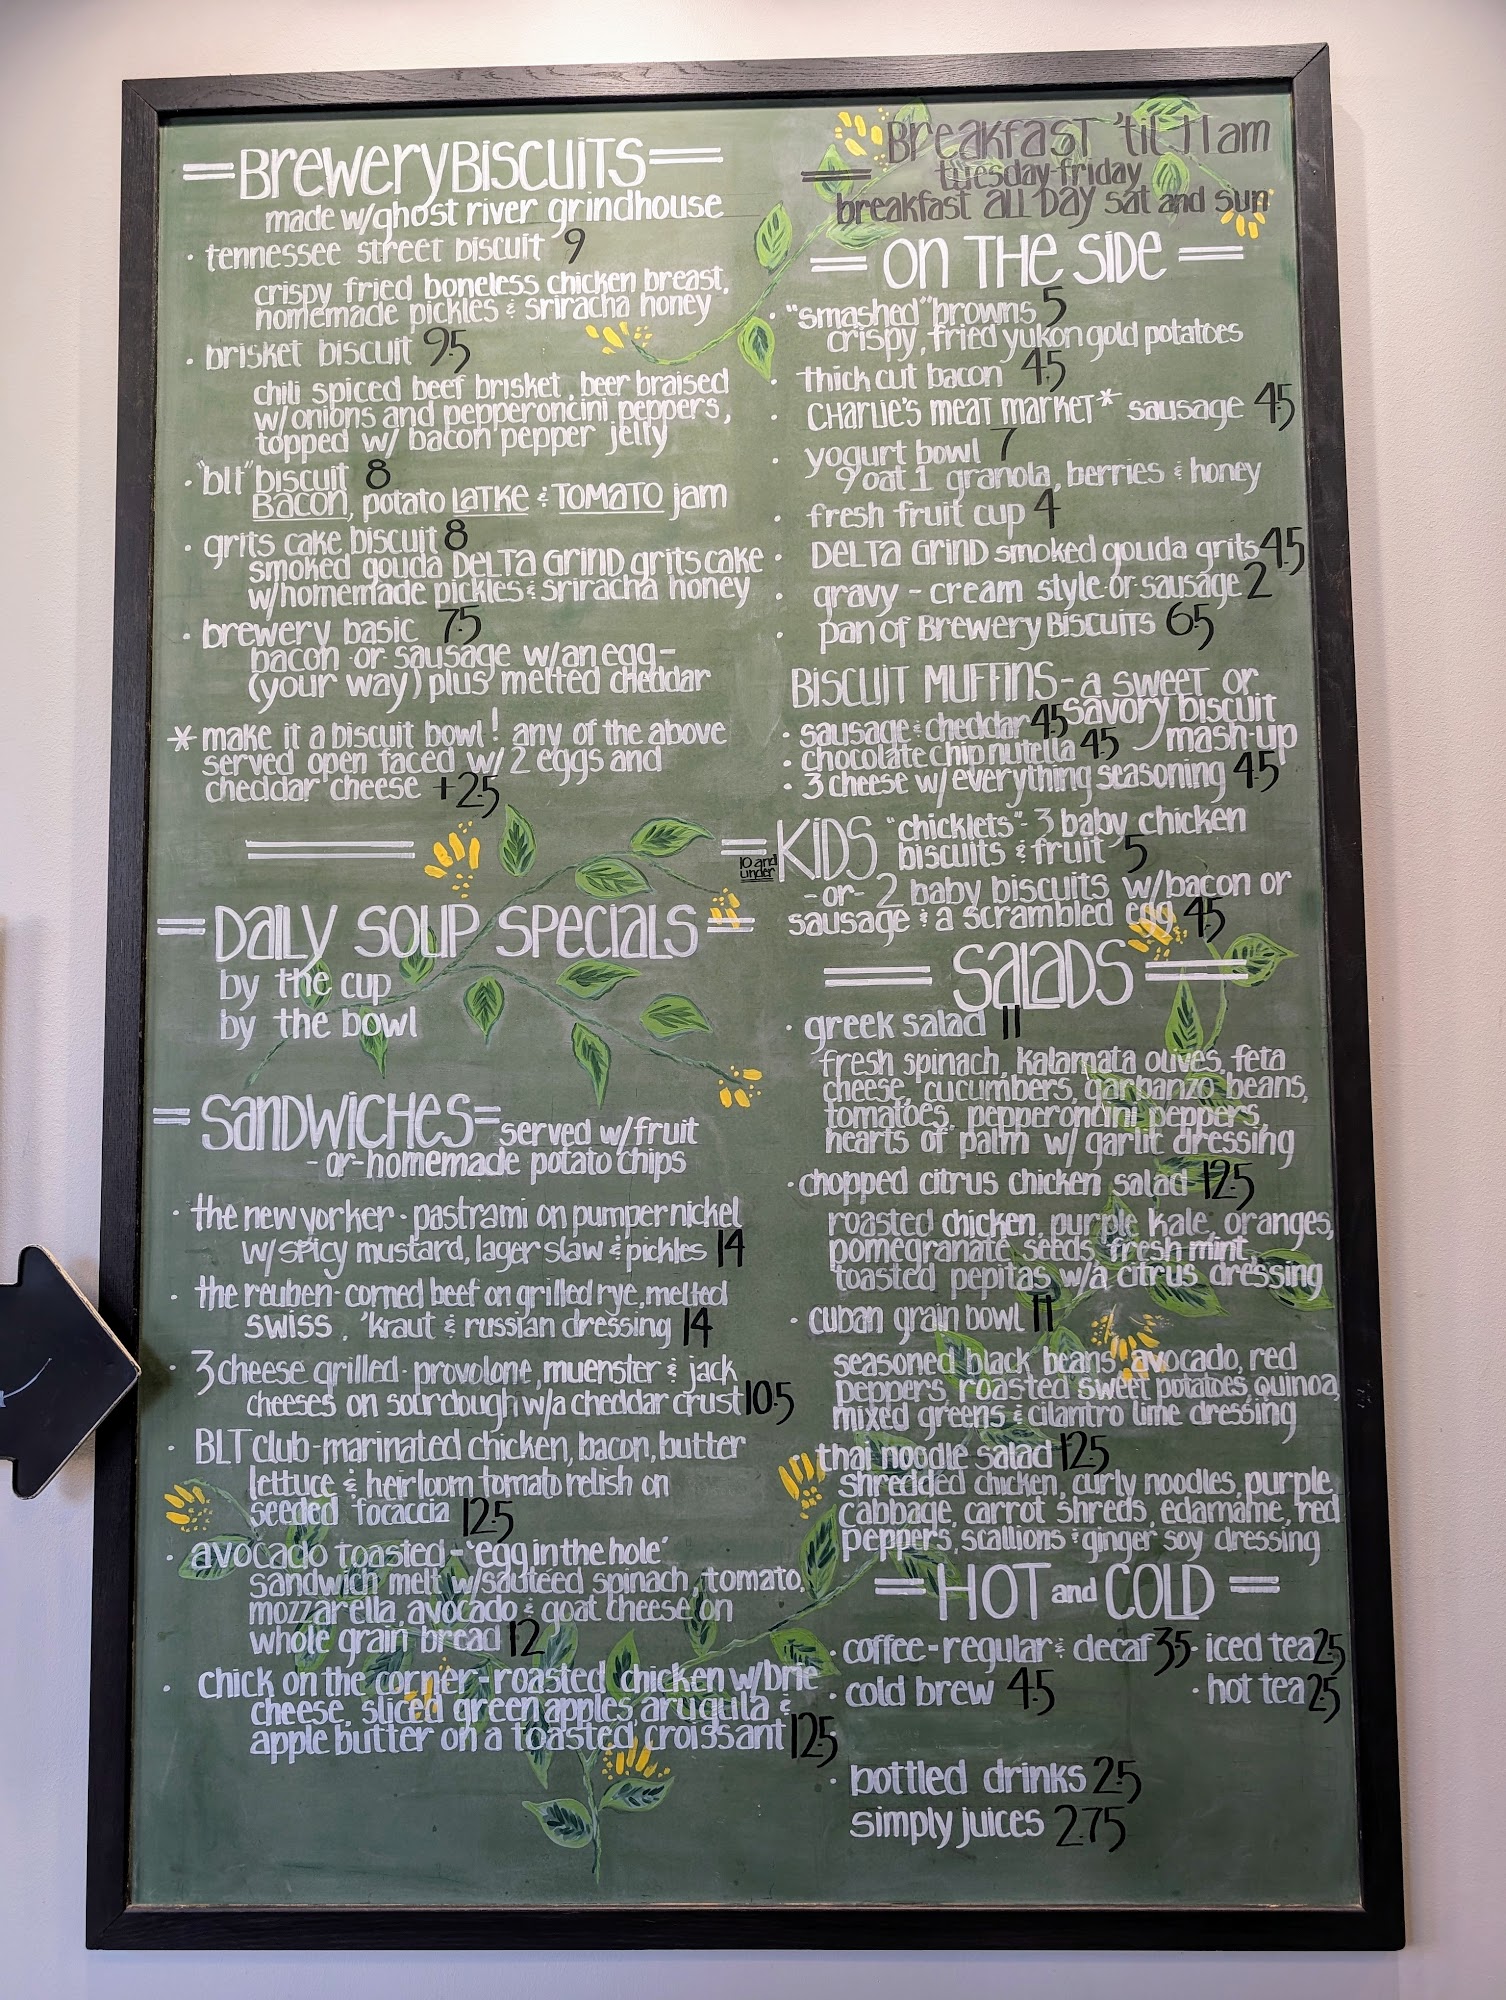 Brewery Biscuits
made w/ghost river grindhouse
· tennessee street biscuit 9
crispy fried boneless chicken breast,
homemade pickles & sriracha honey
· brisket biscuit 9.5
chili spiced beef brisket, beer braised
w/onions and pepperoncini peppers,
topped w/ bacon pepper jelly
· "blt" biscuit 8
BACON, potato LATKE & TOMATO jam
· grits cake biscuit 8
smoked gouda DELTA GRIND grits cake
w/homemade pickles & sriracha honey
· brewery basic 7.5
bacon -or- sausage w/an egg-
(your way) plus melted cheddar
* make it a biscuit bowl! any of the above
served open faced w/ 2 eggs and
cheddar cheese +2.5
DAILY SOUP SPECIALS
by the cup
by the bowl
SANDWICHES
served w/fruit
-or- homemade potato chips
· the new yorker - pastrami on pumpernickel
w/spicy mustard, lager slaw & pickles 14
· the reuben - corned beef on grilled rye, melted
swiss, 'kraut & russian dressing 14
· 3 cheese grilled - provolone, muenster & jack
cheeses on sourdough w/a cheddar crust 10.5
· BLT club - marinated chicken, bacon, butter
lettuce & heirloom tomato relish on
seeded focaccia 12.5
· avocado toasted - 'egg in the hole'
sandwich melt w/sautéed spinach, tomato,
mozzarella, avocado & goat cheese on
whole grain bread 12
· chick on the corner - roasted chicken w/brie
cheese, sliced green apples arugula &
apple butter on a toasted croissant 12.5
Breakfast 'til 11am
tuesday-friday
breakfast ALL DAY sat and sun
ON THE SIDE
· "smashed" browns 5
crispy, fried yukon gold potatoes
· thick cut bacon 4.5
· CHARLIE'S MEAT MARKET* sausage 4.5
· yogurt bowl 7
9 oat 1 granola, berries & honey
· fresh fruit cup 4
· DELTA GRIND smoked gouda grits 4.5
· gravy - cream style -or- sausage 2
· pan of Brewery Biscuits 6.5
BISCUIT MUFFINS - a sweet or
savory biscuit
mash-up
· sausage & cheddar 4.5
· chocolate chip nutella 4.5
· 3 cheese w/everything seasoning 4.5
KIDS
10 and
under
"chicklets" - 3 baby chicken
biscuits & fruit 5
-or- 2 baby biscuits w/bacon or
sausage & a scrambled egg 4.5
SALADS
· greek salad 11
fresh spinach, kalamata olives, feta
cheese, cucumbers, garbanzo beans,
tomatoes, pepperoncini peppers,
hearts of palm w/ garlic dressing
· chopped citrus chicken salad 12.5
roasted chicken, purple kale, oranges,
pomegranate seeds, fresh mint,
toasted pepitas w/a citrus dressing
· cuban grain bowl 11
seasoned black beans, avocado, red
peppers, roasted sweet potatoes, quinoa,
mixed greens & cilantro lime dressing
thai noodle salad 12.5
shredded chicken, curly noodles, purple
cabbage, carrot shreds, edamame, red
peppers, scallions & ginger soy dressing
HOT and COLD
· coffee - regular & decaf 3.5 · iced tea 2.5
· cold brew 4.5 · hot tea 2.5
· bottled drinks 2.5
simply juices 2.75